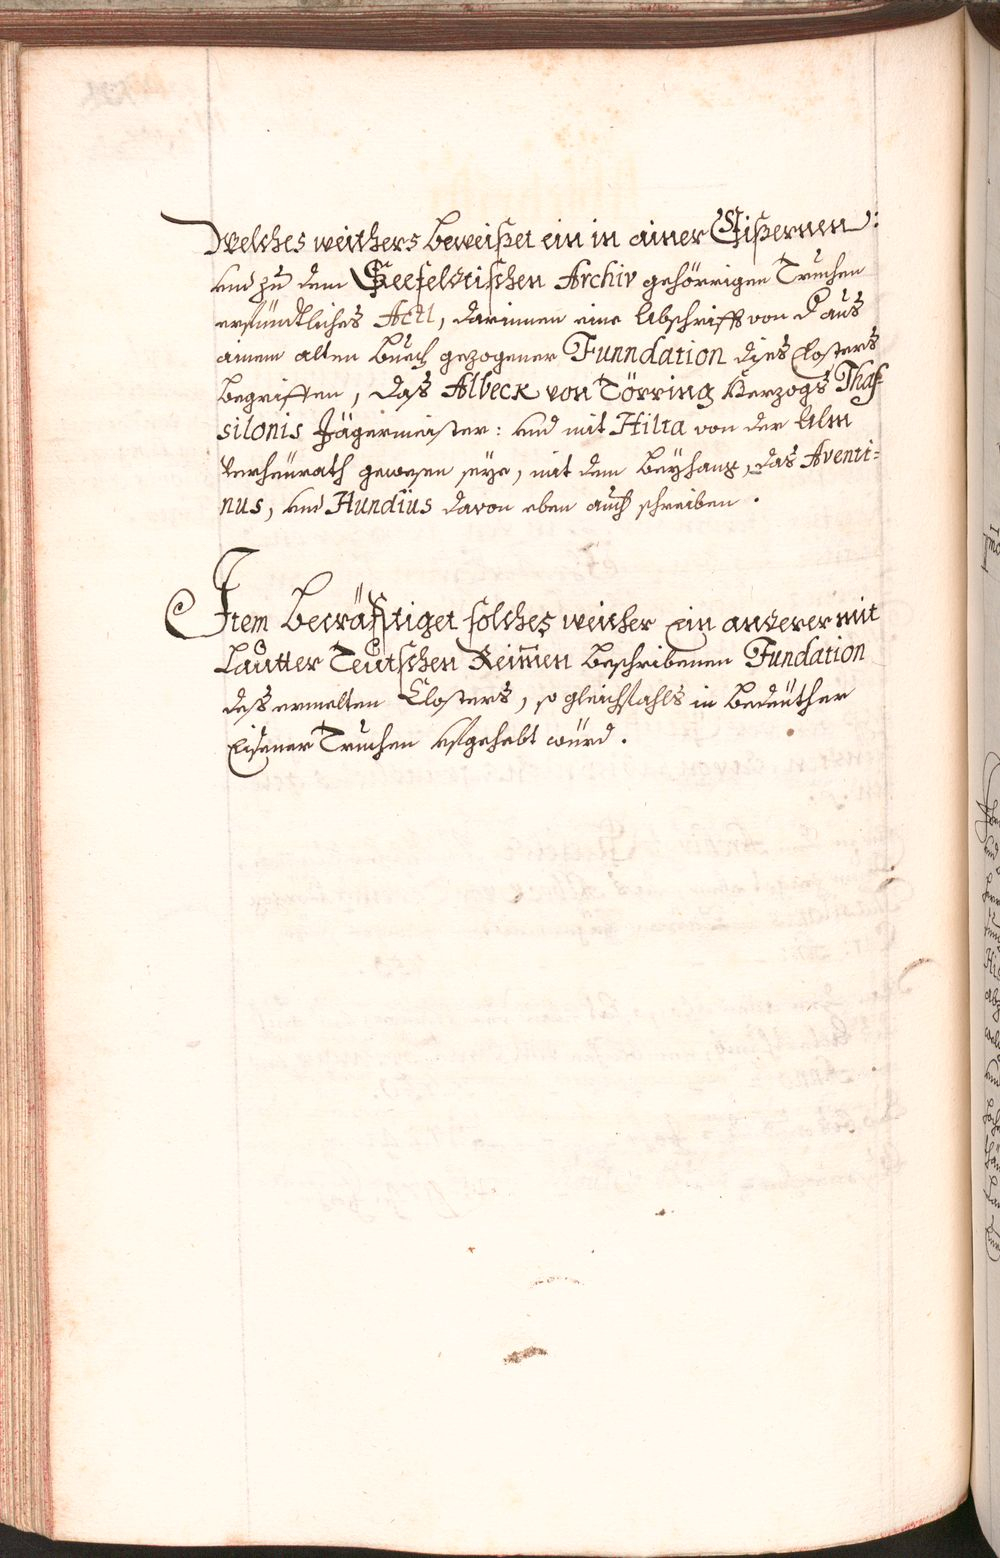 Welches weithers beweißet ein in ainer Eißernen:
und zu dem Seefeldtischen Archiv gehörrigen Truchen
erfündtliches Actl, darinnen eine Abschrifft von d aus
ainem alten Buech gezogener Funndation dies Closters
begriffen, daß Albeck von Törring Herzogs Thas=
silonis Jägermaister: und mit Hilta von der Alm
verheurath gewesen seye, mit dem Beyhang, das Aventi=
nus, und Hundius davon eben auch schreiben.
Item becräfftiget solches weither ein anderer mit
Lautter Teutschen Reimen beschribenen Fundation
des ermelten Closters, so gleichfahls in bedeuther
Eisener Truchen ufgehebt würd.